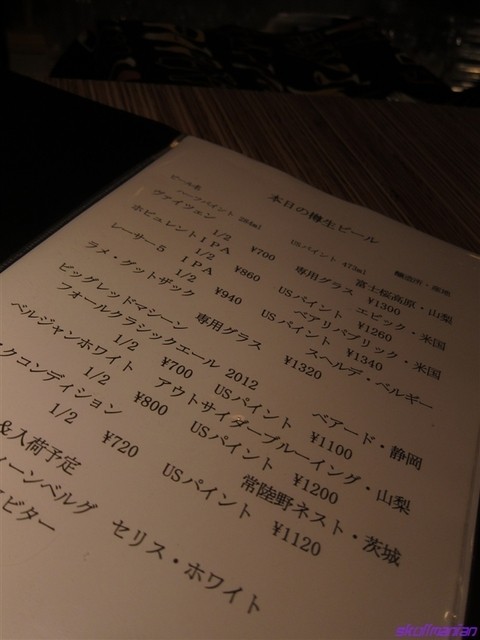 本日の樽生ビール
ビール名 ハーフパイント 284ml USパイント 473ml 醸造所・産地
ヴァイツェン 富士桜高原・山梨
1/2 ¥700 専用グラス ¥1300
ホピュレントIPA エピック・米国
1/2 ¥860 USパイント ¥1260
レーサー5 IPA ベアリパブリック・米国
1/2 ¥940 USパイント ¥1340
ラメ・グットザック スヘルデ・ベルギー
専用グラス ¥1320
ビッグレッドマシーン ベアード・静岡
1/2 ¥700 USパイント ¥1100
フォールクラシックエール 2012 アウトサイダーブルーイング・山梨
1/2 ¥800 USパイント ¥1200
ベルジャンホワイト 常陸野ネスト・茨城
1/2 ¥720 USパイント ¥1120
クコンディション
&入荷予定
ィーンベルグ セリス・ホワイト
ビター